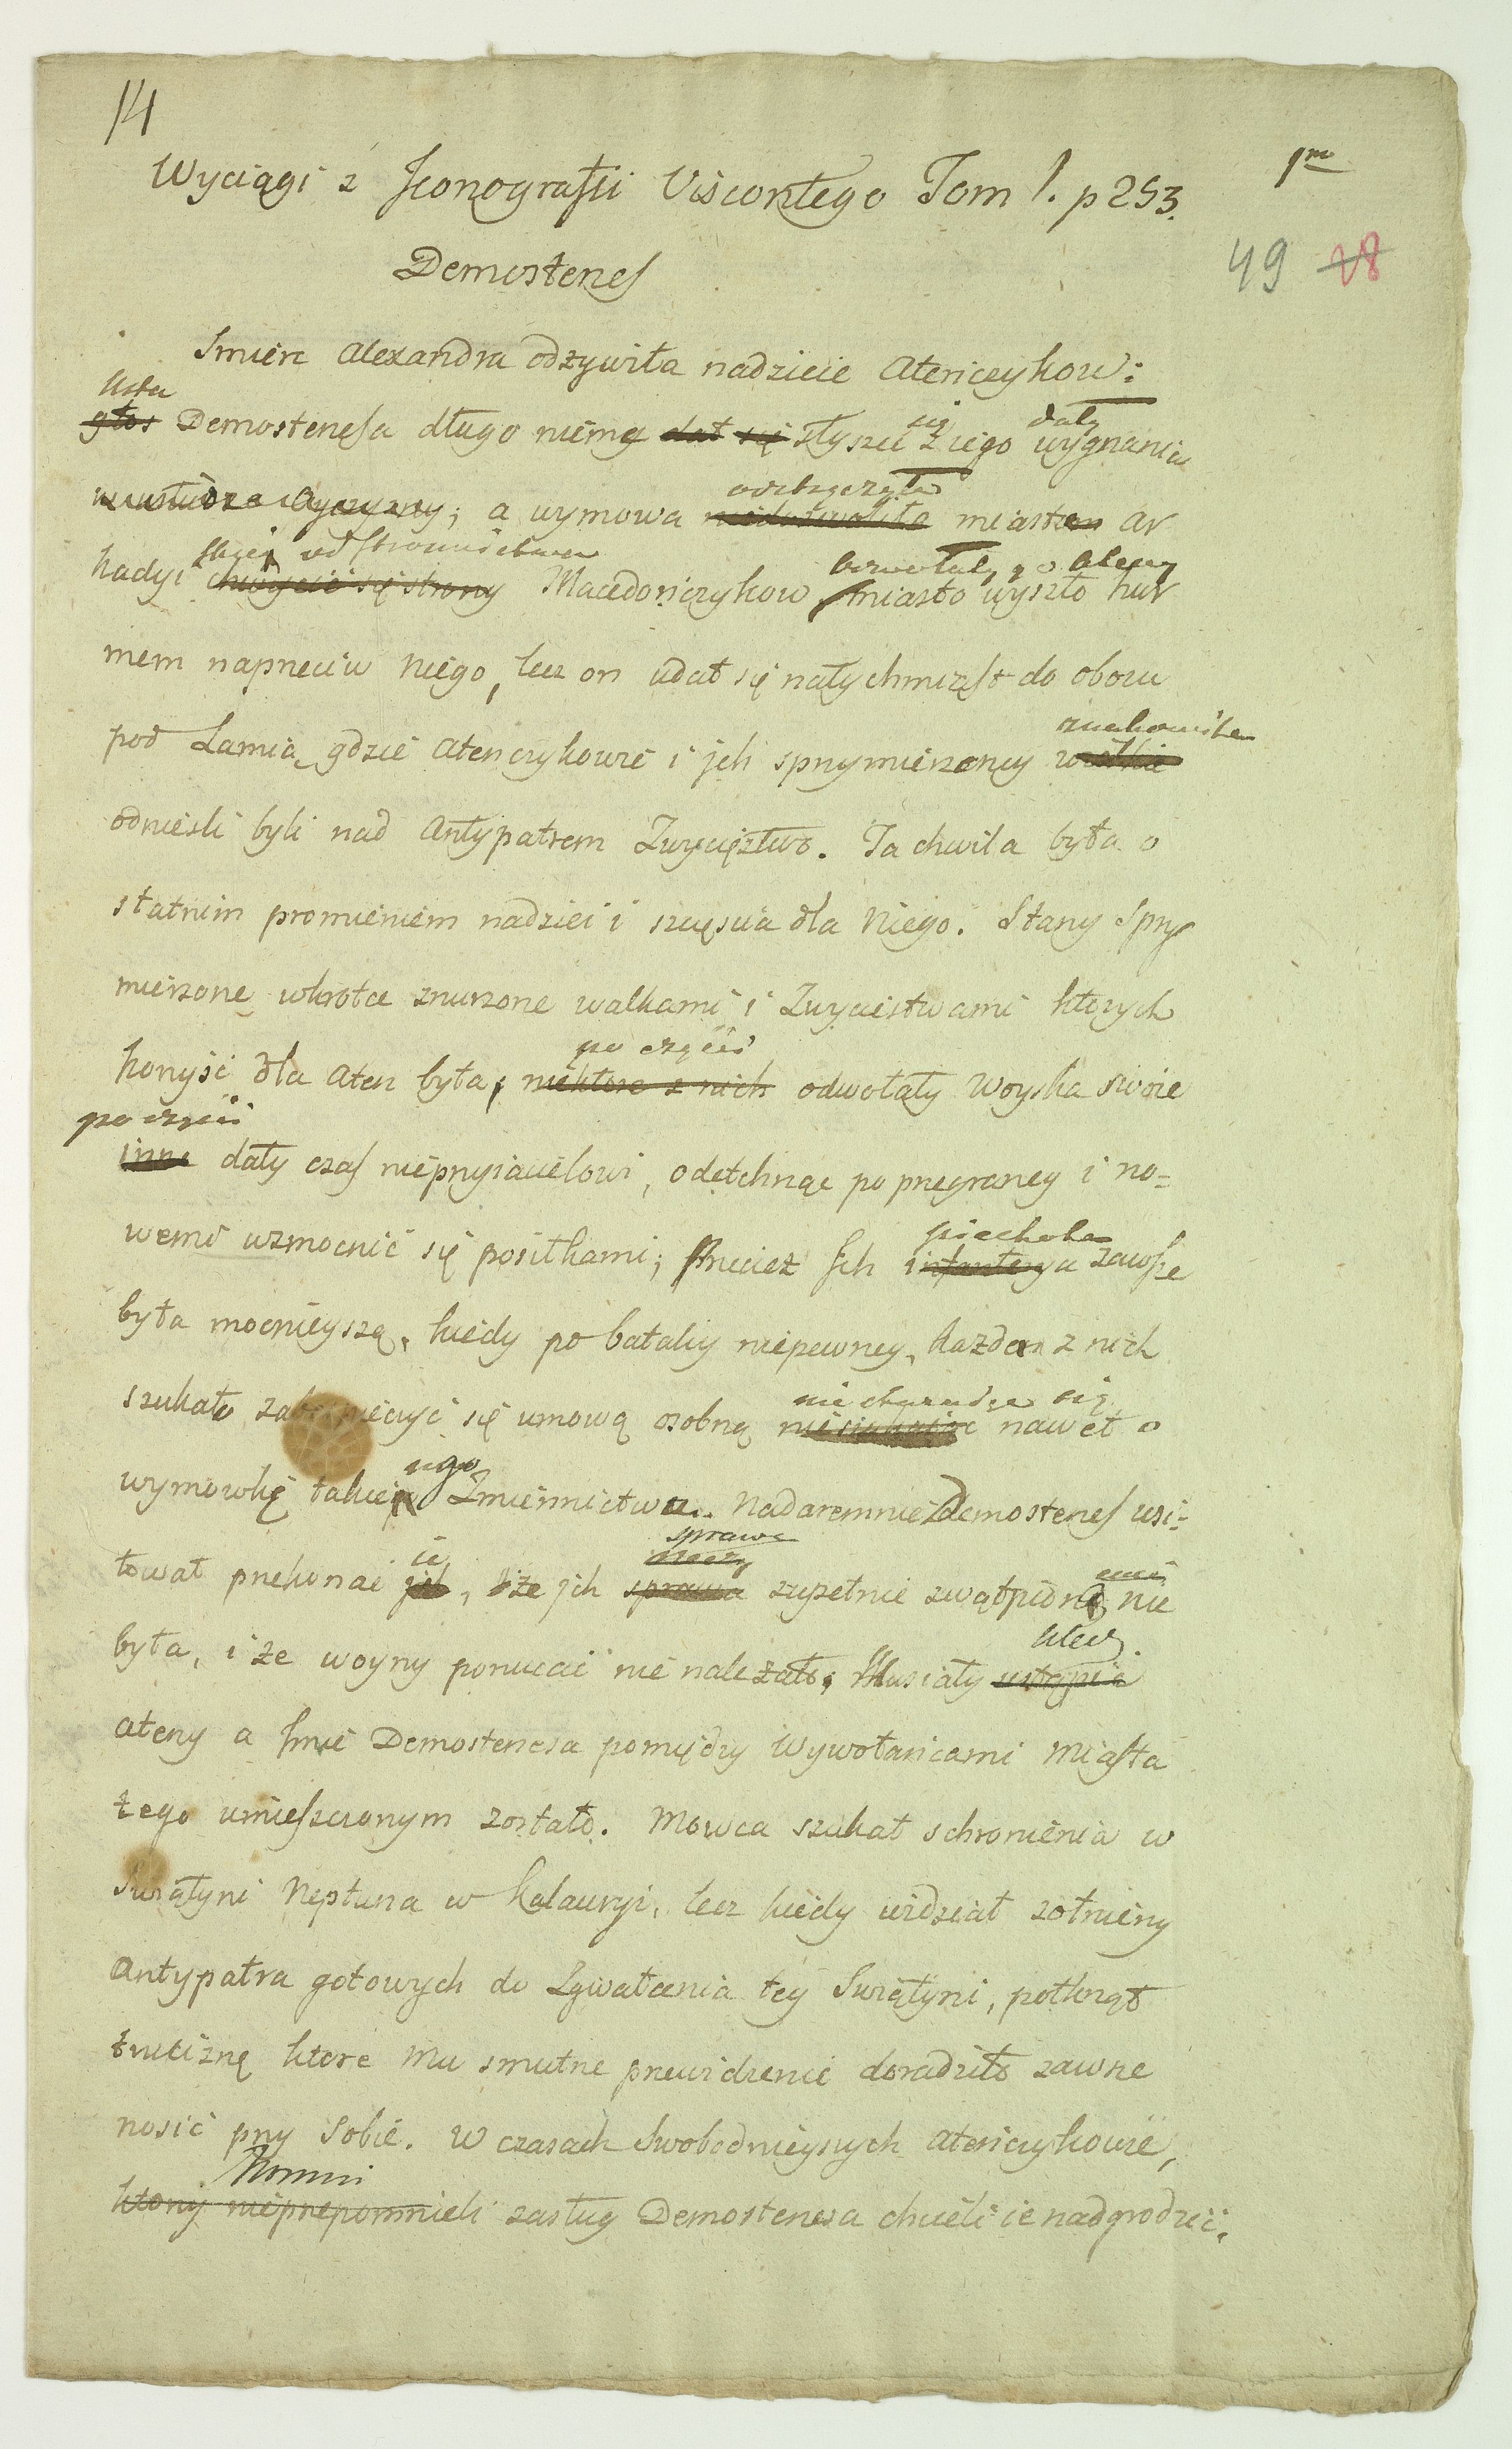 14
1mo
Wyciągi z Iconografii Viscontego Tom I. p 253.
49 28
Demostenes
Smierc Alexandra odzywiła nadzieie Atenczykow:
usta
głos Demostenesa długo nieme dał się słyszec z iego wygnania
się dały
w usłudze oyczyzny; a wymowa miastom Ar
odstręczyła
kadyi chwycic się strony Macedonczykow, miasto wyszło hur
od stronnictwa odwołały go Ateny
mem naprzeciw niego, lecz on udał się natychmiast do obozu
pod Lamią gdzie Atenczykowie i jch sprzymierzency wielkie
znakomite
odniesli byli nad Antypatrem Zwycięztwo. Ta chwila była o
statnim promieniem nadziei i szczęscia dla Niego. Stany sprzy
mierzone wkrotce znurzone walkami i Zwyciestwami ktorych
korzyść dla Aten była, niektore z nich odwołały Woyska swoie
po części
po części
inne dały czas nieprzyiacielowi, odetchnąc po przegraney i no=
wemi wzmocnić się posiłkami; Przeciez Ich infanterya zawsze
piechota
była mocnieyszą, kiedy po bataliy niepewney, kazden z nich
szukało zabezpieczyć się umową osobną nawet o
nie staraiąc się
wymowkę takiey Zmiennictwa. Nadaremnie Demostenes usi=
ego
łował przekonać jch, że jch sprawa zupełnie zwątpioną nie
ie rzeczy sprawa
była, i ze woyny porzucać nie należało; Musiały ustąpić
uledz
Ateny a Imie Demostenesa pomiędzy Wywołańcami Miasta
tego umieszczonym zostało. Mowca szukał schronienia w
Swiątyni Neptuna w Kalauryi, lecz kiedy widział zołnierzy
Antypatra gotowych do Zgwałcenia tey Swiątyni, połknął
truciznę ktore Mu smutne przewidzenie doradziło zawsze
nosić przy Sobie. W czasach Swobodnieyszych Atenczykowie,
Pomni
ktorzy nieprzepomnieli zasług Demostenesa chcieli ie nadgrodzić,